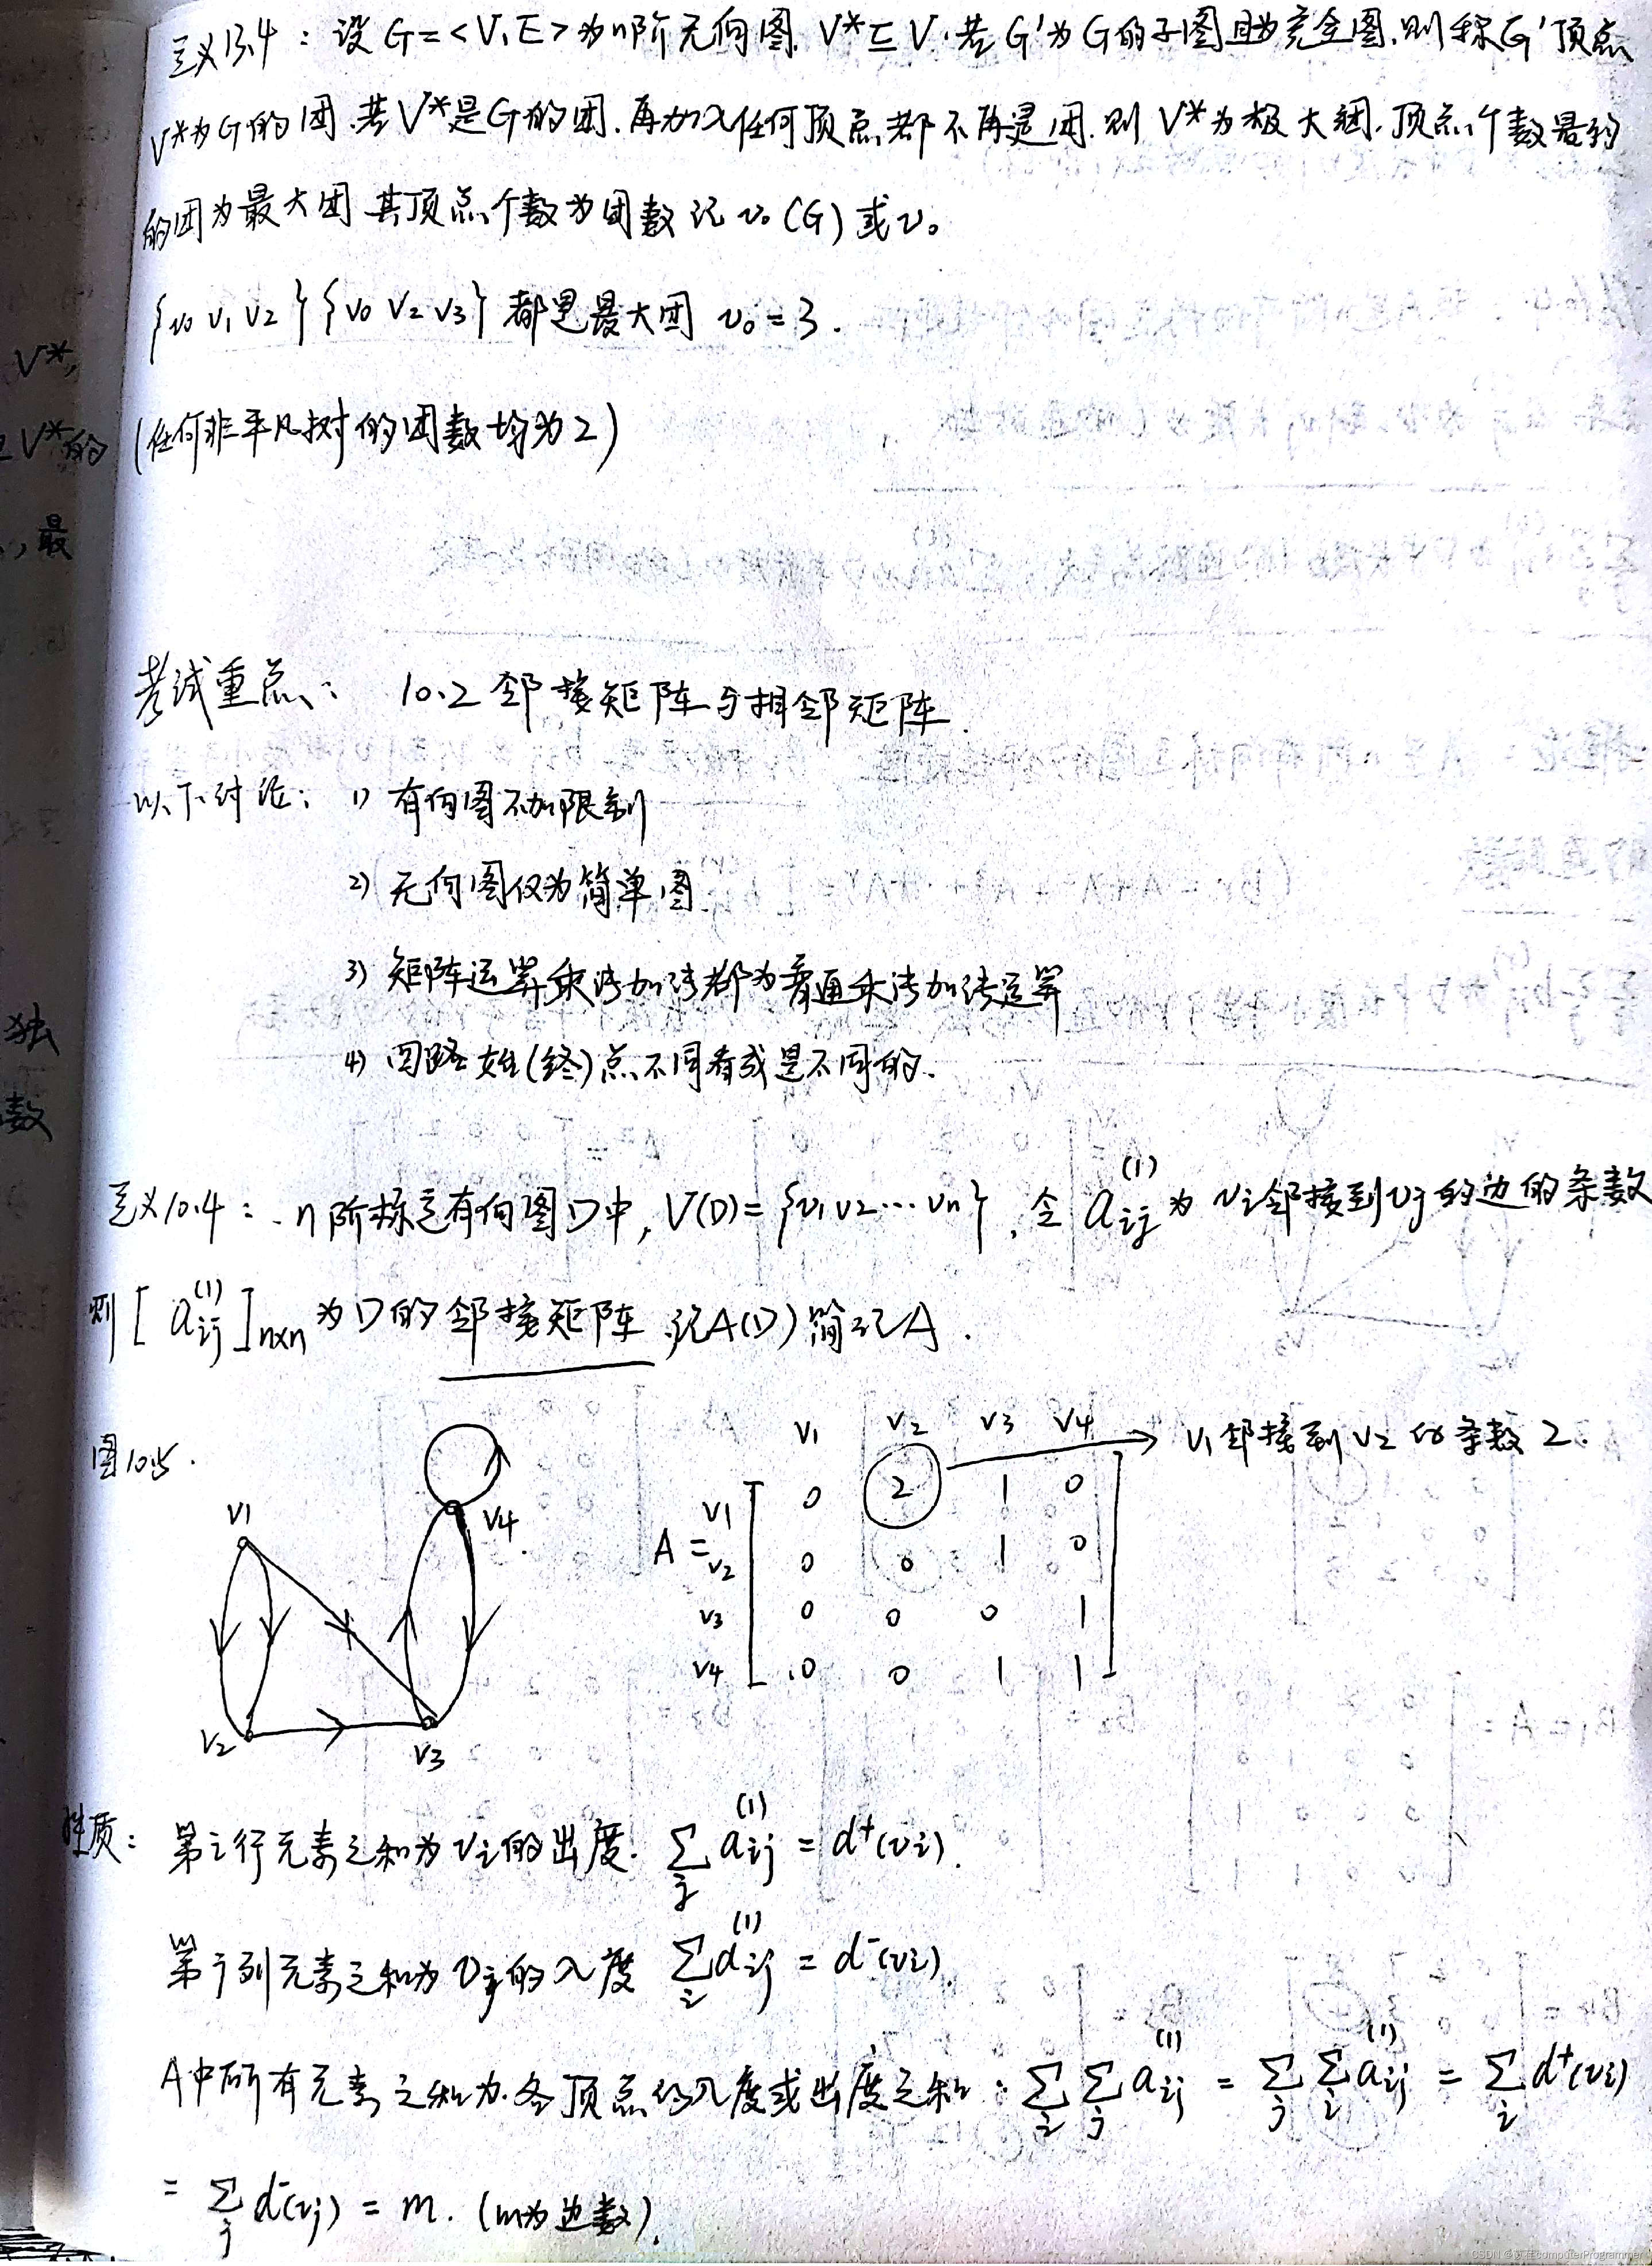 定义13.4：设G=<V,E>为n阶无向图，V*⊆V，若G'为G的子图且为完全图，则称G'顶点
V*为G的团，若V*是G的团，再加入任何顶点都不再是团，则V*为极大团，顶点个数最多
的团为最大团 其顶点个数为团数 记ν₀(G)或ν₀
{v0 v1 v2} {v0 v2 v3} 都是最大团 ν₀=3.
V*,
(任何非平凡树的团数均为2)
V*的
,最
考试重点： 10.2 邻接矩阵与相邻矩阵.
以下讨论： 1) 有向图不加限制
2) 无向图仅为简单图
3) 矩阵运算乘法加法都为普通乘法加法运算
独
4) 回路始(终)点不同看成是不同的.
数
定义10.4：n阶标定有向图D中，V(D)={v1 v2…vn}，令 aij(1) 为 vi邻接到vj的边的条数
则 [aij(1)]n×n 为D的邻接矩阵 记A(D)简记A.
图10.5. v1 v2 v3 v4 → v1邻接到v2的条数2.
v1 v4 v1 0 2 1 0
A= v2 0 0 1 0
v3 0 0 0 1
v4 0 0 1 1
v2 v3
性质：第i行元素之和为vi的出度. ∑j aij(1) = d⁺(vi).
第j列元素之和为vj的入度 ∑i dij(1) = d⁻(vi).
A中所有元素之和为各顶点的入度或出度之和：∑i ∑j aij(1) = ∑j ∑i aij(1) = ∑i d⁺(vi)
= ∑j d⁻(vj) = m. (m为边数).